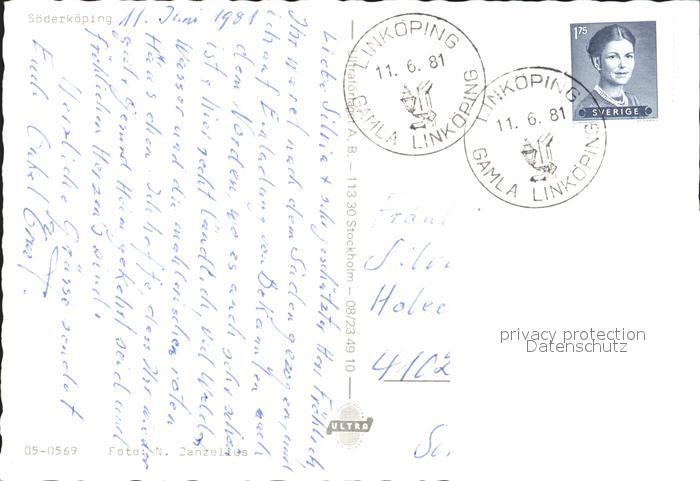 Söderköping
11. Juni 1981
Liebe Silvia + sehr geschätzter Herr Fröhlich,
Ihr wieset nach dem Süden gezogen, und
ich auf Einladung von Bekannten nach
dem Norden, wo es auch sehr schön
ist, hier recht ländlich, viel Wald
Wasser und die malerischen roten
Häuschen. Ich hoffe, dass Ihr wieder
gut, gesund Heimgekehrt seid und
fröhlichen Herzens
Herzliche Grüsse sendet
Euch Onkel
Ultraförlaget A.B. – 113 30 Stockholm – 08/23 49 10
ULTRA
05-0569 Foto: N. Janzelles
LINKÖPING
11. 6. 81
GAMLA LINKÖPING
LINKÖPING
11. 6. 81
GAMLA LINKÖPING
1.75
SVERIGE
Fräul
Silvi
4102
privacy protection
Datenschutz